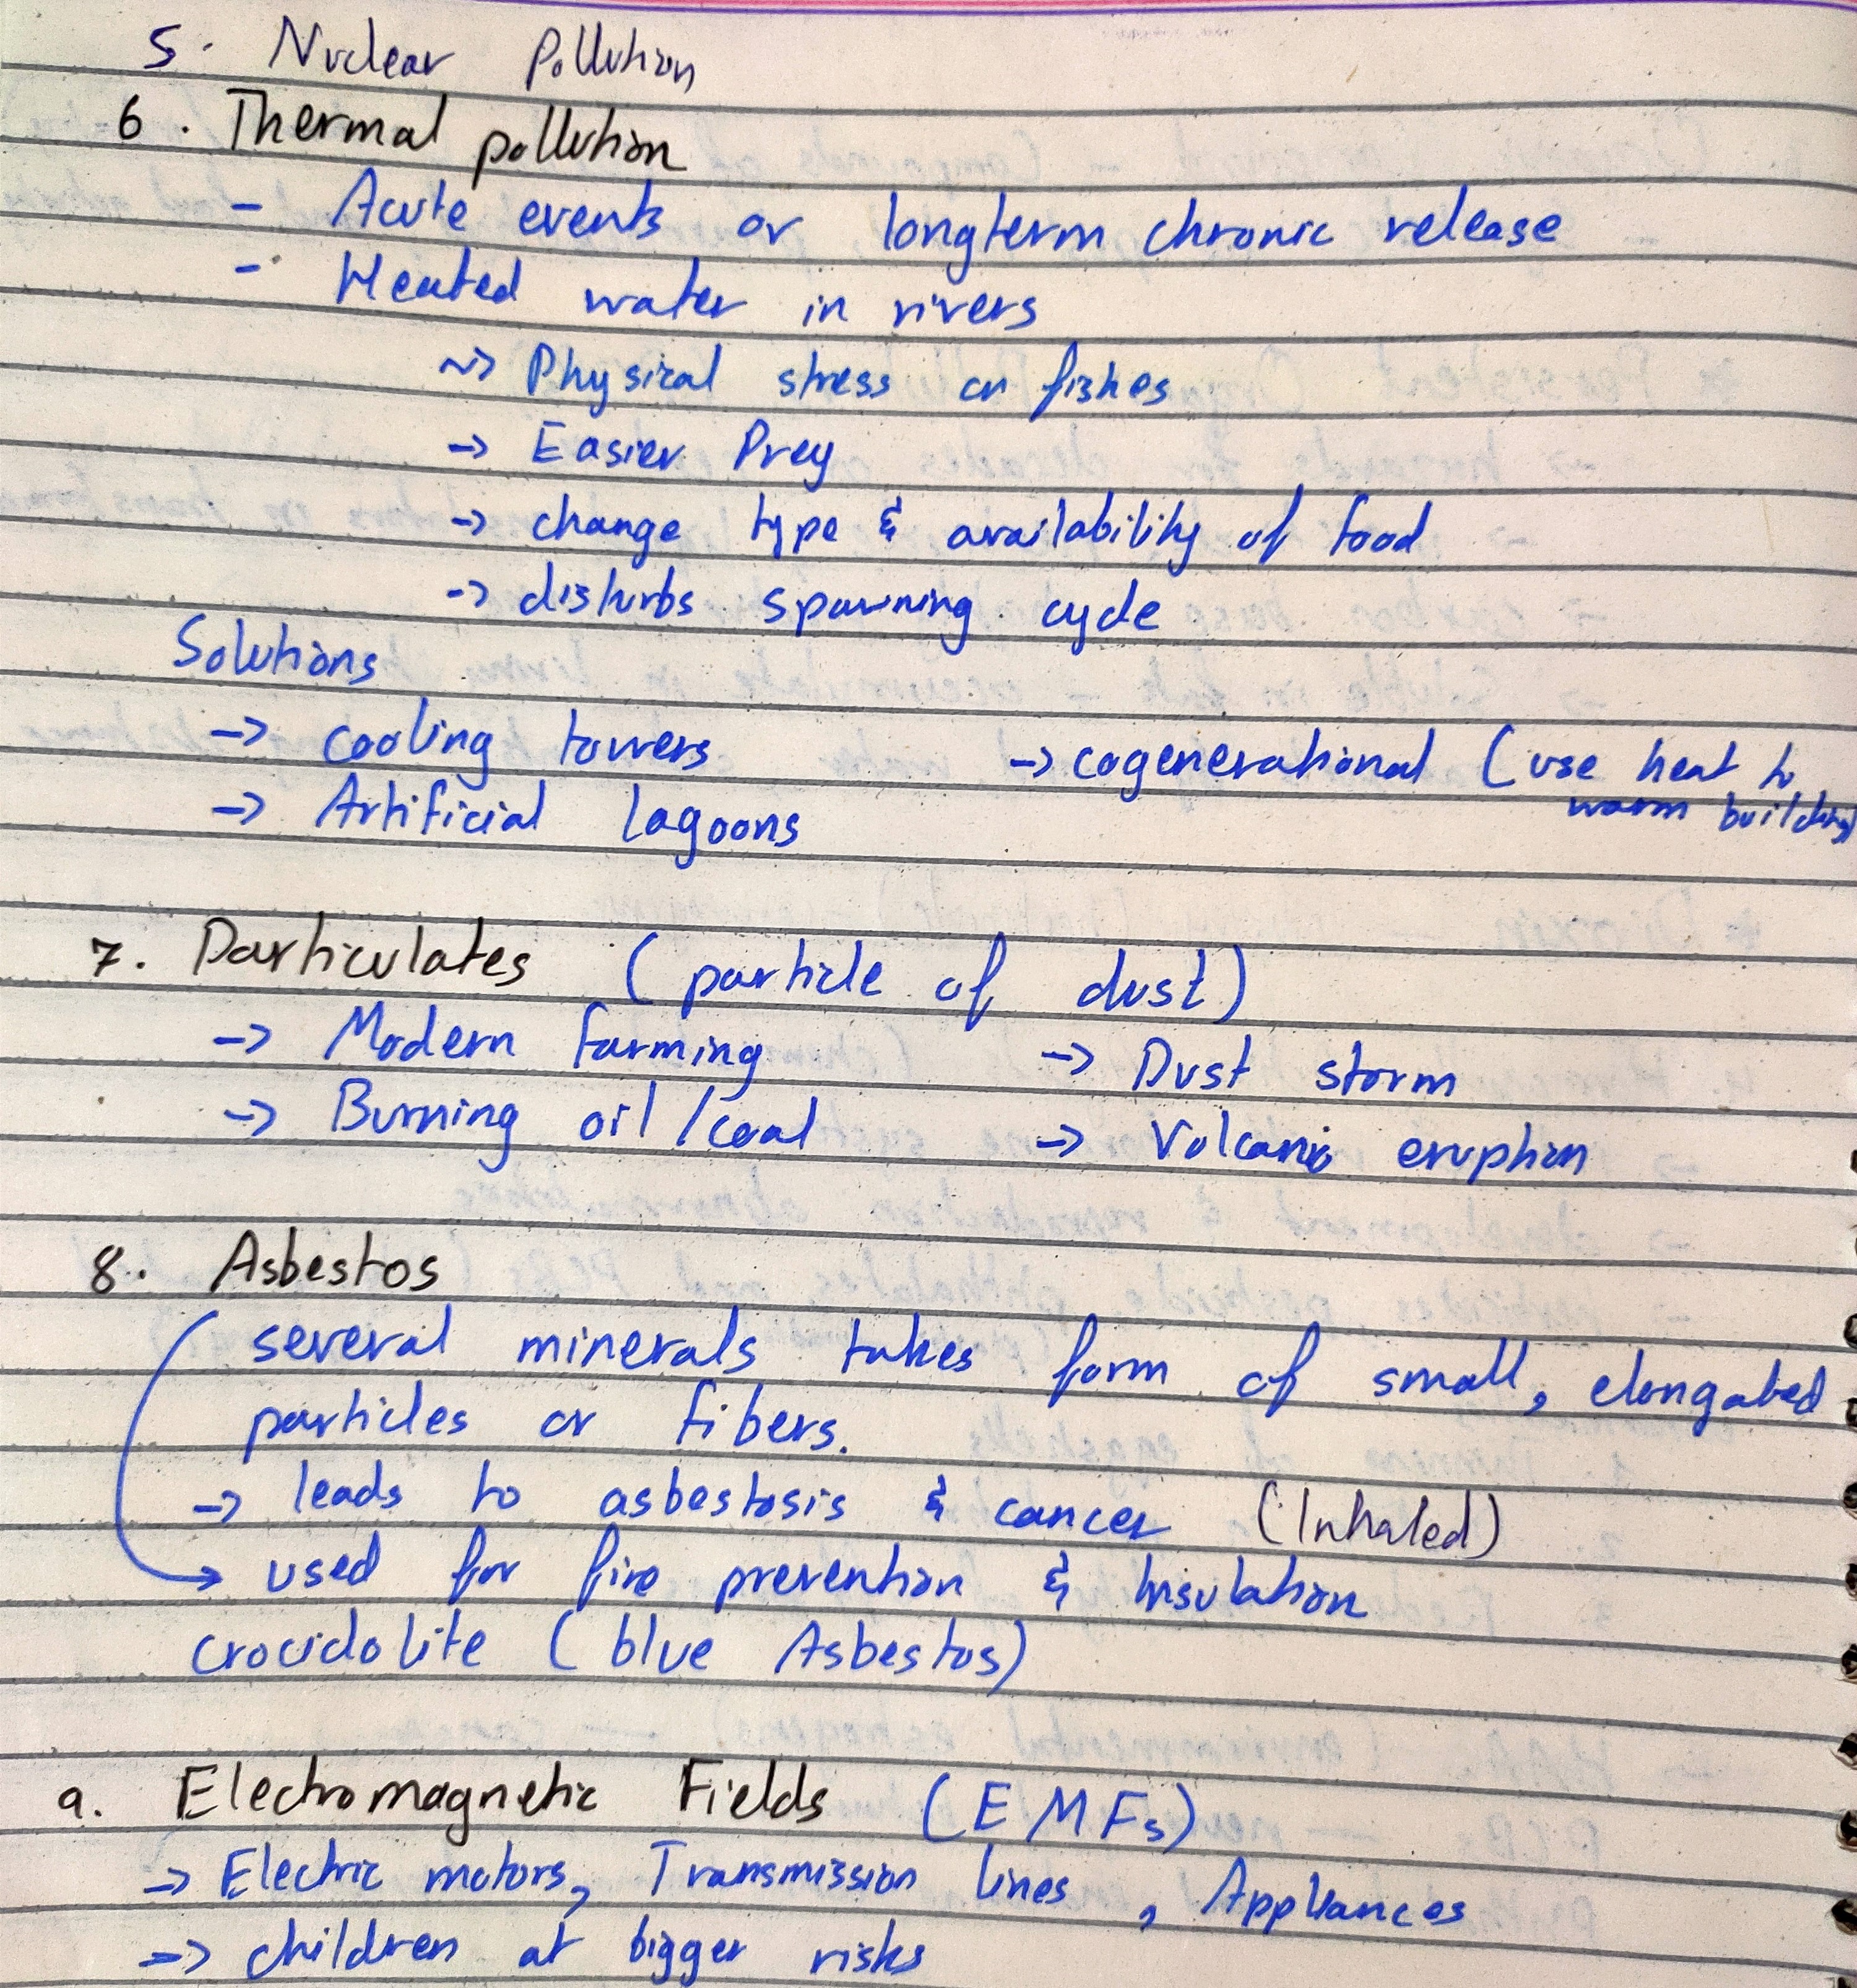 5. Nuclear Pollution
6. Thermal pollution
- Acute events or longterm chronic release
- Heated water in rivers
~> Physical stress on fishes
-> Easier Prey
-> change type & availability of food
-> disturbs spawning cycle
Solutions
-> cooling towers
-> cogenerational (use heat to
warm building)
-> Artificial lagoons
7. Particulates (particle of dust)
-> Modern farming -> Dust storm
-> Burning oil/coal -> Volcanic eruption
8. Asbestos
several minerals takes form of small, elongated
particles or fibers.
-> leads to asbestosis & cancer (Inhaled)
-> used for fire prevention & Insulation
crocidolite (blue Asbestos)
9. Electromagnetic Fields (EMFs)
-> Electric motors, Transmission lines, Appliances
-> children at bigger risks